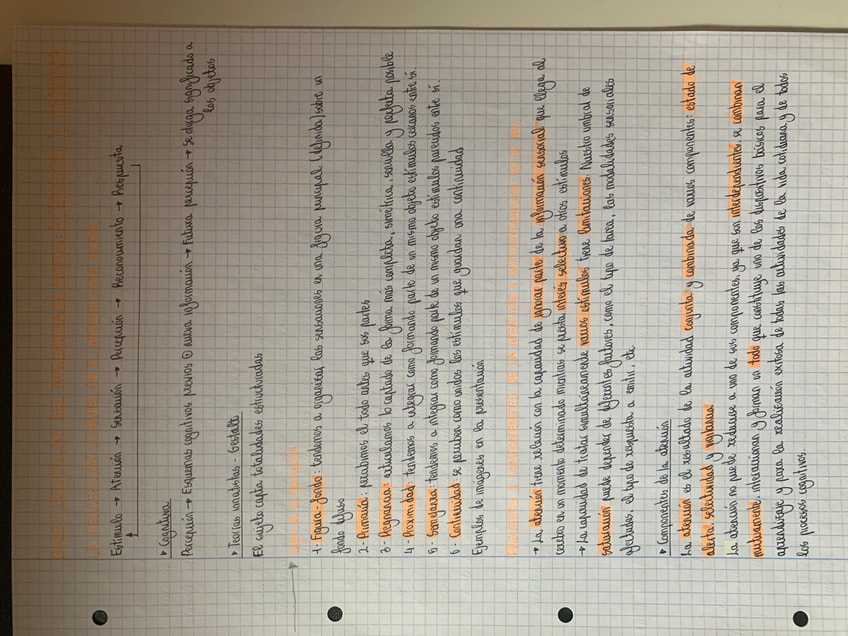 Estímulo → Atención → Sensación → Percepción → Reconocimiento → Respuesta
▸ Cognitiva
Percepción → Esquemas cognitivos previos ⊕ nueva información → Futura percepción → Se otorga significado a
los objetos
▸ Teorías innatistas - Gestalt
El sujeto capta totalidades estructuradas
1- Figura-fondo: tendemos a organizar las sensaciones en una figura principal (definida) sobre un
fondo difuso
2- Primacía: percibimos el todo antes que sus partes
3- Pregnancia: articulamos lo captado de la forma más completa, simétrica, sencilla y perfecta posible
4- Proximidad: tendemos a integrar como formando parte de un mismo objeto estímulos cercanos entre sí.
5- Semejanza: tendemos a integrar como formando parte de un mismo objeto estímulos parecidos entre sí.
6- Continuidad: se perciben como unidos los estímulos que guardan una continuidad
Ejemplos de imágenes en la presentación
→ La atención tiene relación con la capacidad de ignorar parte de la información sensorial que llega al
cerebro en un momento determinado mientras se presta interés selectivo a otros estímulos
→ La capacidad de tratar simultáneamente varios estímulos tiene limitaciones. Nuestro umbral de
saturación puede depender de diferentes factores, como el tipo de tarea, las modalidades sensoriales
afectadas, el tipo de respuesta a emitir, etc
▸ Componentes de la atención
La atención es el resultado de la actividad conjunta y combinada de varios componentes: estado de
alerta, selectividad y vigilancia
La atención no puede reducirse a uno de sus componentes, ya que son interdependientes, se combinan
mutuamente, interaccionan y forman un todo que constituye uno de los dispositivos básicos para el
aprendizaje y para la realización exitosa de todas las actividades de la vida cotidiana y de todos
los procesos cognitivos.